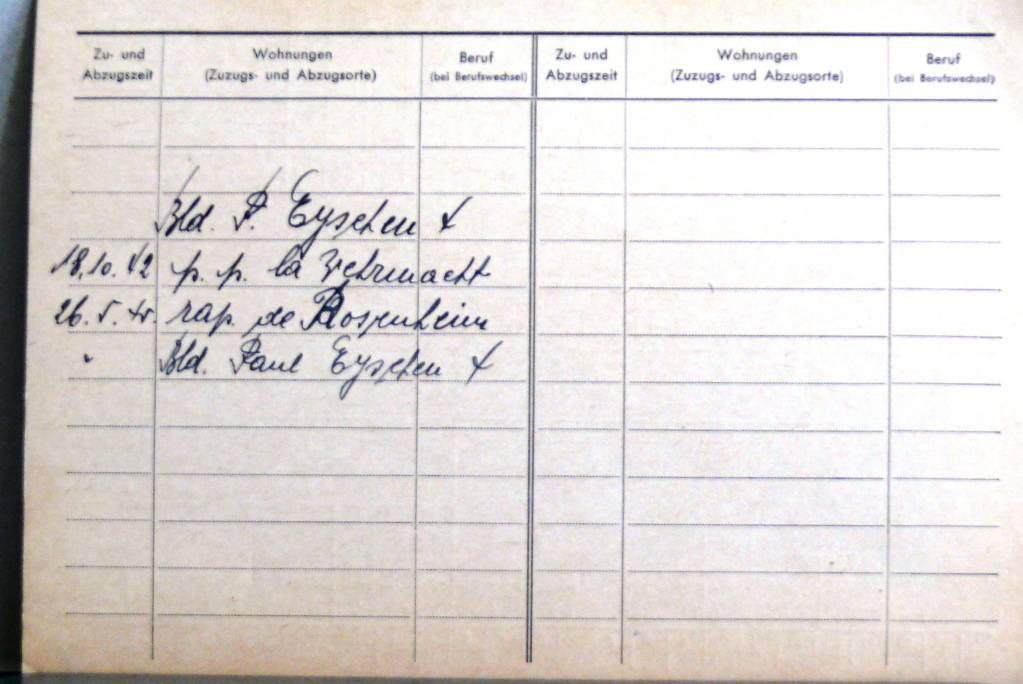 Zu- und Abzugszeit
Wohnungen (Zuzugs- und Abzugsorte)
Beruf (bei Berufswechsel)
Zu- und Abzugszeit
Wohnungen (Zuzugs- und Abzugsorte)
Beruf (bei Berufswechsel)
Bld. P. Eyschen 4
18.10.42 p. p. la Wehrmacht
26. 5. 45. rap. de Rosenheim
" Bld. Paul Eyschen 4